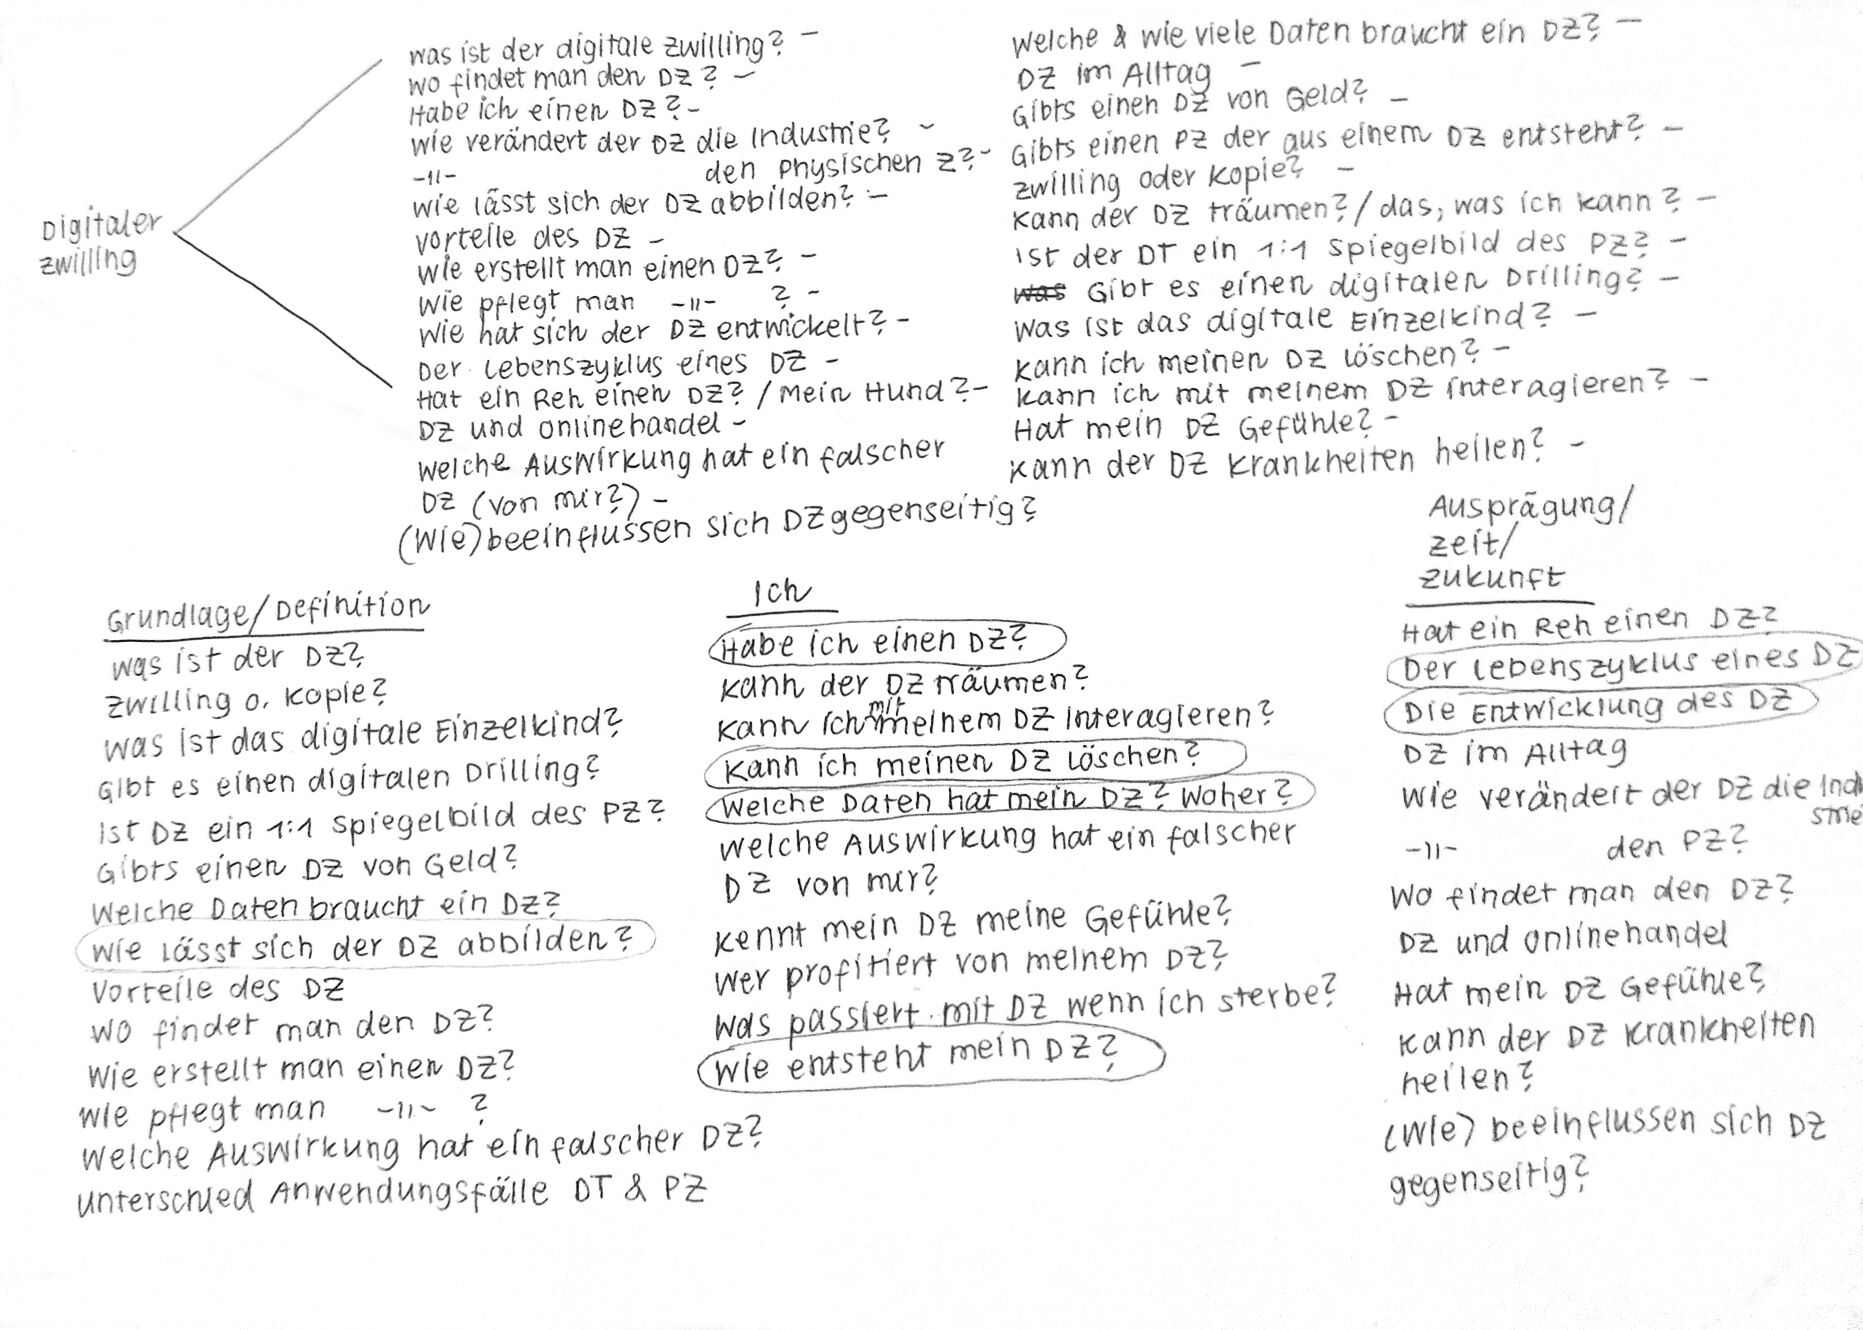 Digitaler
Zwilling
was ist der digitale Zwilling? –
wo findet man den DZ? –
Habe ich einen DZ? –
wie verändert der DZ die Industrie? –
–||– den physischen Z? –
wie lässt sich der DZ abbilden? –
Vorteile des DZ –
Wie erstellt man einen DZ? –
Wie pflegt man –||– ? –
Wie hat sich der DZ entwickelt? –
Der Lebenszyklus eines DZ –
Hat ein Reh einen DZ? / Mein Hund? –
DZ und Onlinehandel –
Welche Auswirkung hat ein falscher
DZ (von mir?) –
(Wie) beeinflussen sich DZ gegenseitig?
Welche & wie viele Daten braucht ein DZ? –
DZ im Alltag –
Gibts einen DZ von Geld? –
Gibts einen PZ der aus einem DZ entsteht? –
Zwilling oder Kopie? –
Kann der DZ träumen? / das, was ich kann? –
Ist der DT ein 1:1 Spiegelbild des PZ? –
was Gibt es einen digitalen Drilling? –
Was ist das digitale Einzelkind? –
Kann ich meinen DZ löschen? –
Kann ich mit meinem DZ interagieren? –
Hat mein DZ Gefühle? –
Kann der DZ Krankheiten heilen? –
Grundlage/Definition
Was ist der DZ?
Zwilling o. Kopie?
Was ist das digitale Einzelkind?
Gibt es einen digitalen Drilling?
Ist DZ ein 1:1 Spiegelbild des PZ?
Gibts einen DZ von Geld?
Welche Daten braucht ein DZ?
Wie lässt sich der DZ abbilden?
Vorteile des DZ
Wo findet man den DZ?
Wie erstellt man einen DZ?
Wie pflegt man –||– ?
Welche Auswirkung hat ein falscher DZ?
Unterschied Anwendungsfälle DT & PZ
Ich
Habe ich einen DZ?
Kann der DZ träumen?
Kann ich mit meinem DZ interagieren?
Kann ich meinen DZ löschen?
Welche Daten hat mein DZ? Woher?
Welche Auswirkung hat ein falscher
DZ von mir?
Kennt mein DZ meine Gefühle?
Wer profitiert von meinem DZ?
Was passiert mit DZ wenn ich sterbe?
Wie entsteht mein DZ?
Ausprägung/
Zeit/
Zukunft
Hat ein Reh einen DZ?
Der Lebenszyklus eines DZ
Die Entwicklung des DZ
DZ im Alltag
Wie verändert der DZ die Indu
strie
–||– den PZ?
Wo findet man den DZ?
DZ und Onlinehandel
Hat mein DZ Gefühle?
Kann der DZ Krankheiten
heilen?
(Wie) beeinflussen sich DZ
gegenseitig?